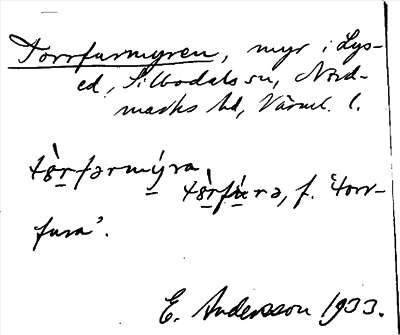 Torrfurmyren, myr i Lys-
ed, Silbodals sn, Nord-
marks hd, Värml. l.
tö̀r̠fərmý̠ra
tö̀r̠fu̠rə, f. 'torr-
fura'.
E. Andersson 1933.